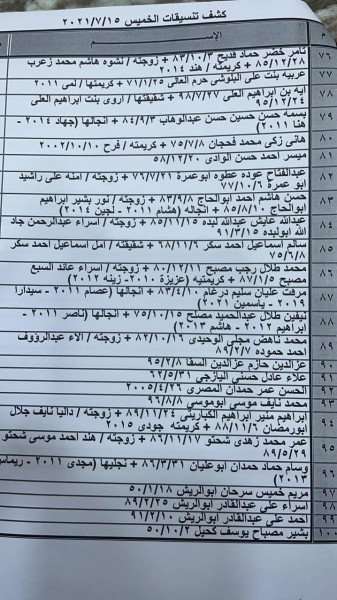 كشف تنسيقات الخميس ٢٠٢١/٧/١٥
م الإســـم
٧٦ تامر خضر حماد قديح ٨٣/١٠/٣ + زوجته / نشوه هاشم محمد زعرب
٨٥/١٢/٢٨ + كريمته / هند ٢٠١٤
٧٧ عربيه بنت على البلوشي حرم العالى ٧١/١/٢٥ + كريمتها / لمى ٢٠١١
٧٨ ايه بن ابراهيم العلى ٩٨/٧/٢٧ + شقيقتها / اروى بنت ابراهيم العلى
٩٥/١٢/٢٤
٧٩ بسمه حسن حسين حسن عبدالوهاب ٨٤/٩/٣ + انجالها (جهاد ٢٠١٤ -
هنا ٢٠١١)
٨٠ هانى زكى محمد فحجان ٧٥/٧/٨ + كريمته / فرح ٢٠٠٢/١٠/١٠
٨١ ميسر احمد حسن الوادى ٥٨/١٢/٢٠
٨٢ عبدالفتاح عوده عطوه ابوعمرة ٧٦/٧/٢١ + زوجته / امنه على راشيد
ابو عمرة ٧٧/١٠/٦
٨٣ حسن هاشم احمد ابوالحاج ٨٣/٩/٨ + زوجته / نور بشير ابراهيم
ابوالحاج ٨٥/٨/١٠ + انجاله (هشام ٢٠١١ - لجين ٢٠١٤)
٨٤ عبدالله عايش عبدالله لبده ٨٥/١١/١٥ + زوجته / اسراء عبدالرحمن جاد
الله ابولبده ٩١/٣/١٥
٨٥ سالم اسماعيل احمد سكر ٦٨/١١/٦ + شقيقته / امل اسماعيل احمد سكر
٧٥/٦/٨
٨٦ محمد طلال رجب مصبح ٨٠/١٢/١١ + زوجته / اسراء عائد السبع
مصبح ٨٧/١/٥ + كريمتيه (عزيزة ٢٠١٠ - زينه ٢٠١٢)
٨٧ مرفت عليان سليم درغام ٨٣/٤/١٠ + انجالها (عصام ٢٠١١ - سيدارا
٢٠١٩ - ياسمين ٢٠٢١)
٨٨ نيفين طلال عبدالحميد مصلح ٧٥/١٠/١٥ + انجالها (ناصر ٢٠١١ -
ابراهيم ٢٠١٢ - هاشم ٢٠١٣)
٨٩ محمد ناهض مجلى الوحيدى ٨٢/١٠/١٦ + زوجته / الاء عبدالرؤوف
احمد حموده ٨٩/٢/٧
٩٠ عزالدين حازم عزالدين السقا ٩٥/٢/٨
٩١ علاء عادل حسنى اليازجى ٦٢/٥/٣١
٩٢ الحسن عمر حمدان المصرى ٢٠٠٥/٤/٢٦
٩٣ محمد نايف موسى ابوموسى ٩٦/٨/٨
٩٤ ابراهيم منير ابراهيم الكباريتى ٨٩/١١/٢٤ + زوجته / داليا نايف جلال
ابورمضان ٨٨/١١/٦ + كريمته جودى ٢٠١٥
٩٥ عمر محمد زهدى شحتو ٨٦/١١/١٧ + زوجته / هند احمد موسى شحتو
٨٩/٥/٢٩
٩٦ وسام حماد حمدان ابوعليان ٨٦/٣/٣١ + نجليها (مجدى ٢٠١١ - ريماس
٢٠١٣)
٩٧ مريم خميس سرحان ابوالريش ٥٠/١/١٨
٩٨ اسراء على عبدالقادر ابوالريش ٨٩/٢/٢٥
٩٩ احمد على عبدالقادر ابوالريش ٩١/٢/١٠
١٠٠ بشير مصباح يوسف كحيل ٥٠/١٠/٢